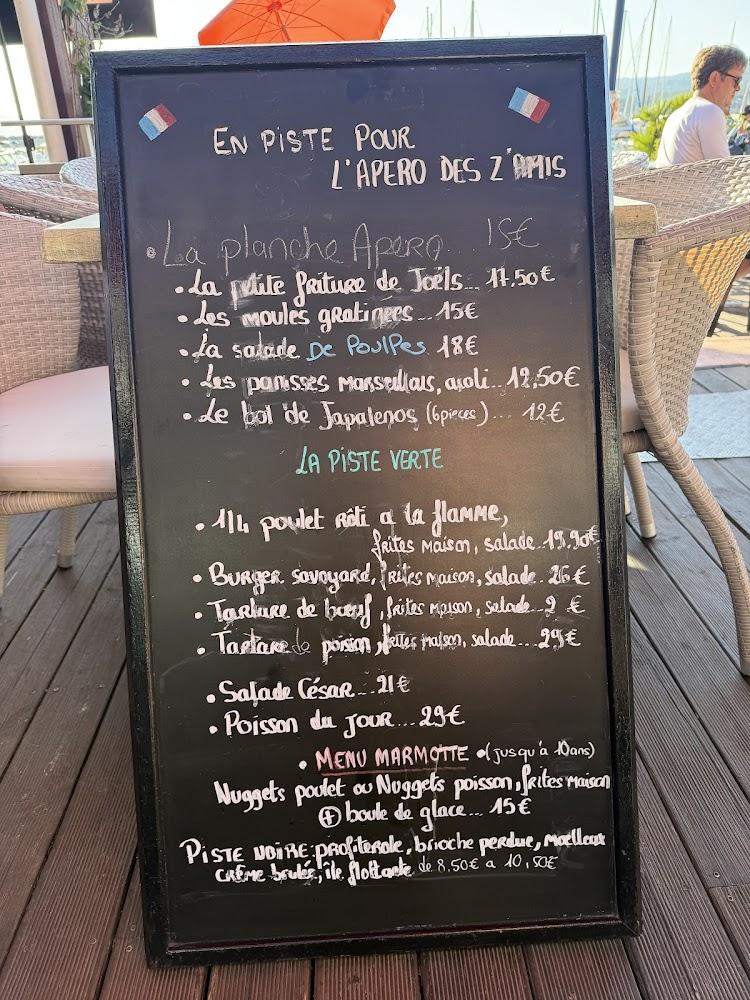 EN PISTE POUR
L'APERO DES Z'AMIS
• La planche Apero... 15€
• La petite friture de Joëls... 17.50€
• Les moules gratinees... 15€
• La salade DE POULPES 18€
• Les panisses marseillais, aioli.. 12,50€
• Le bol de Japalenos (6pieces)... 12€
LA PISTE VERTE
• 1/4 poulet rôti a la flamme,
frites maison, salade..19.90€
• Burger savoyard, frites maison, salade.. 26€
• Tartare de bœuf, frites maison, salade..2 €
• Tartare de poisson, frites maison, salade...29€
• Salade César...21€
• Poisson du jour...29€
• MENU MARMOTTE • (jusqu'à 10ans)
Nuggets poulet ou Nuggets poisson, frites maison
+ boule de glace... 15€
PISTE NOIRE: profiterole, brioche perdue, moelleux
crème brulée, île flottante de 8.50€ a 10,50€